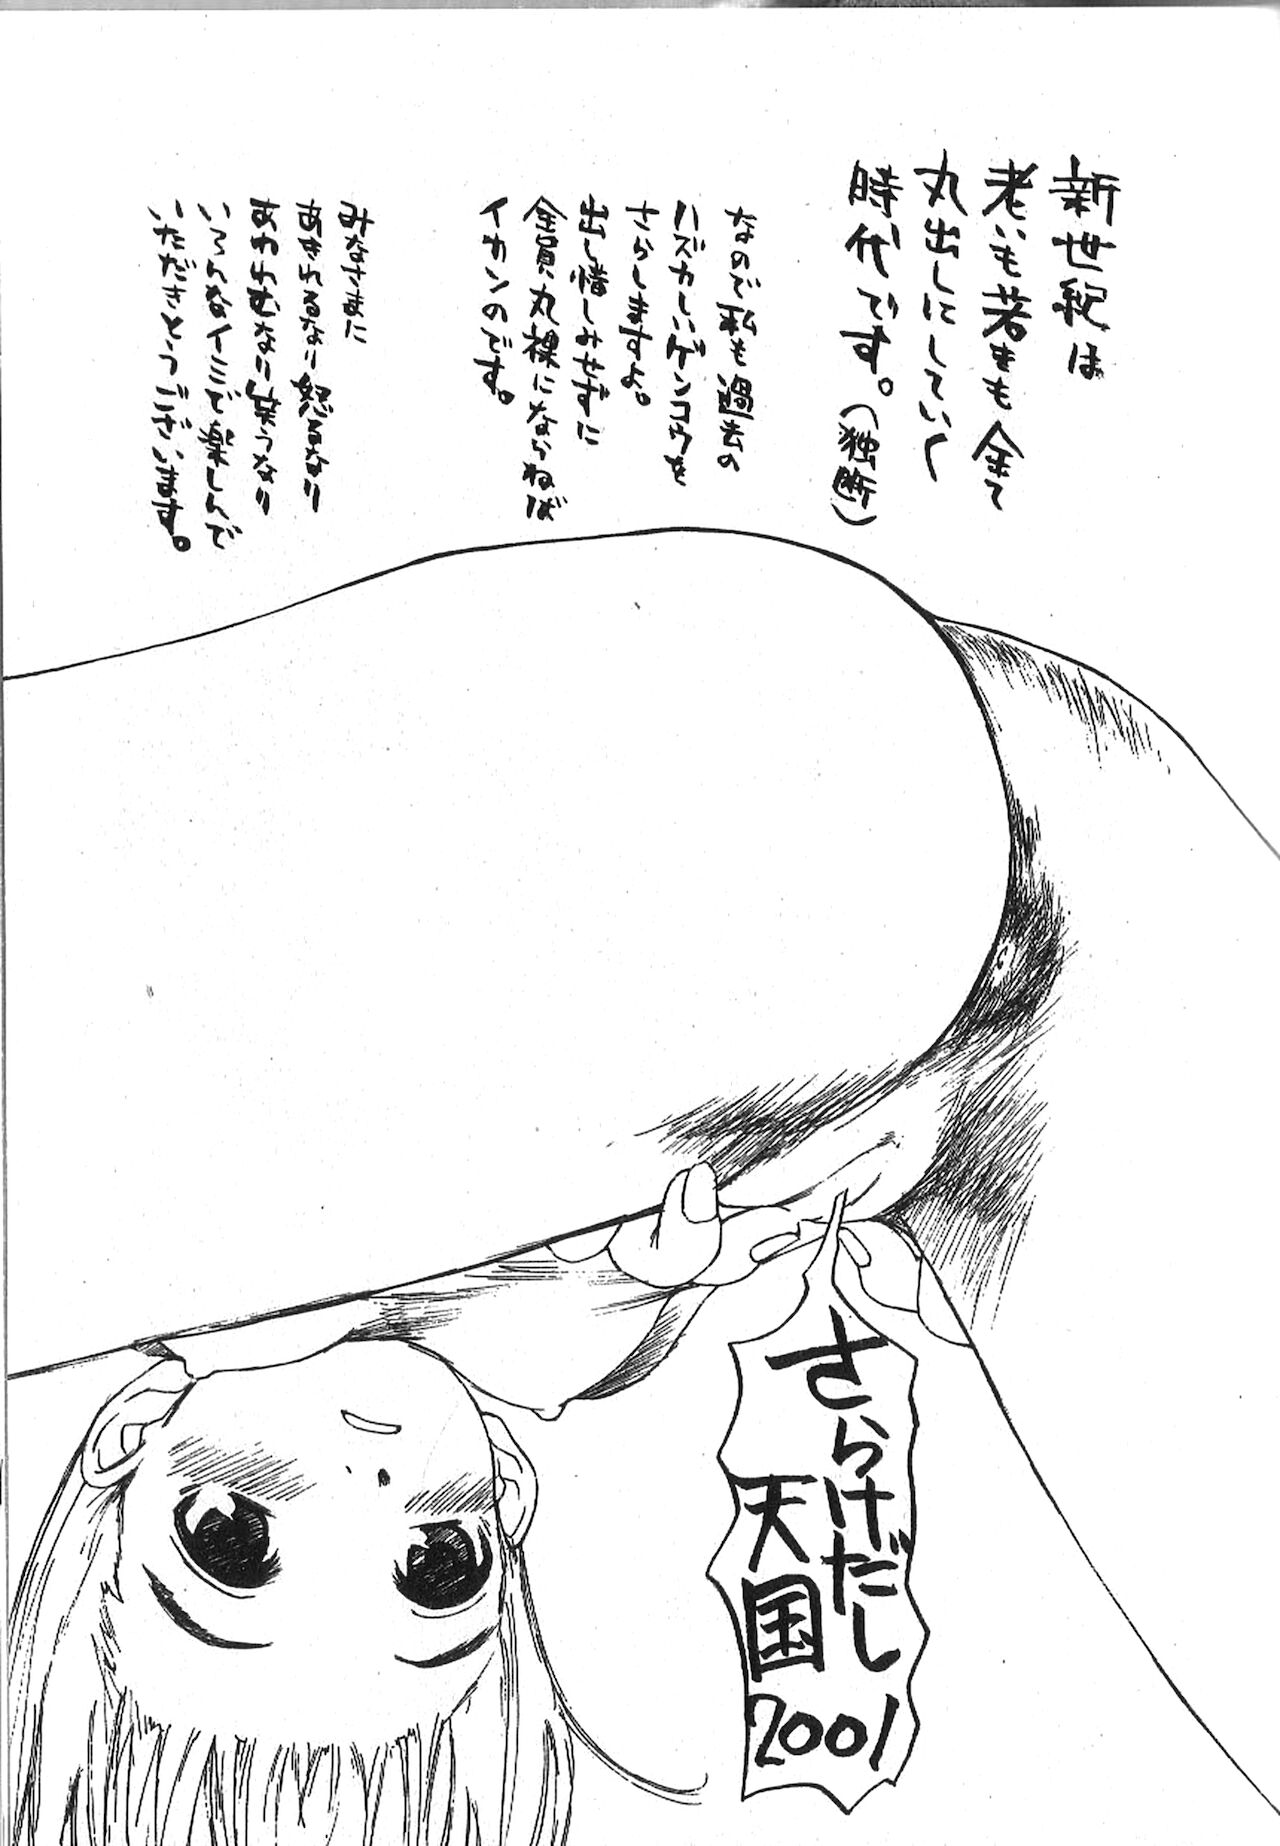 新世紀は
老いも若きも全て
丸出しにしていく
時代です。(独断)
なので私も過去の
ハズカしいゲンコウを
さらしますよ。
出し惜しみせずに
全員丸裸にならねば
イカンのです。
みなさまに
あきれるなり怒るなり
あわれむなり笑うなり
いろんなイミで楽しんで
いただきとうございます。
さらけだし
天国
2001